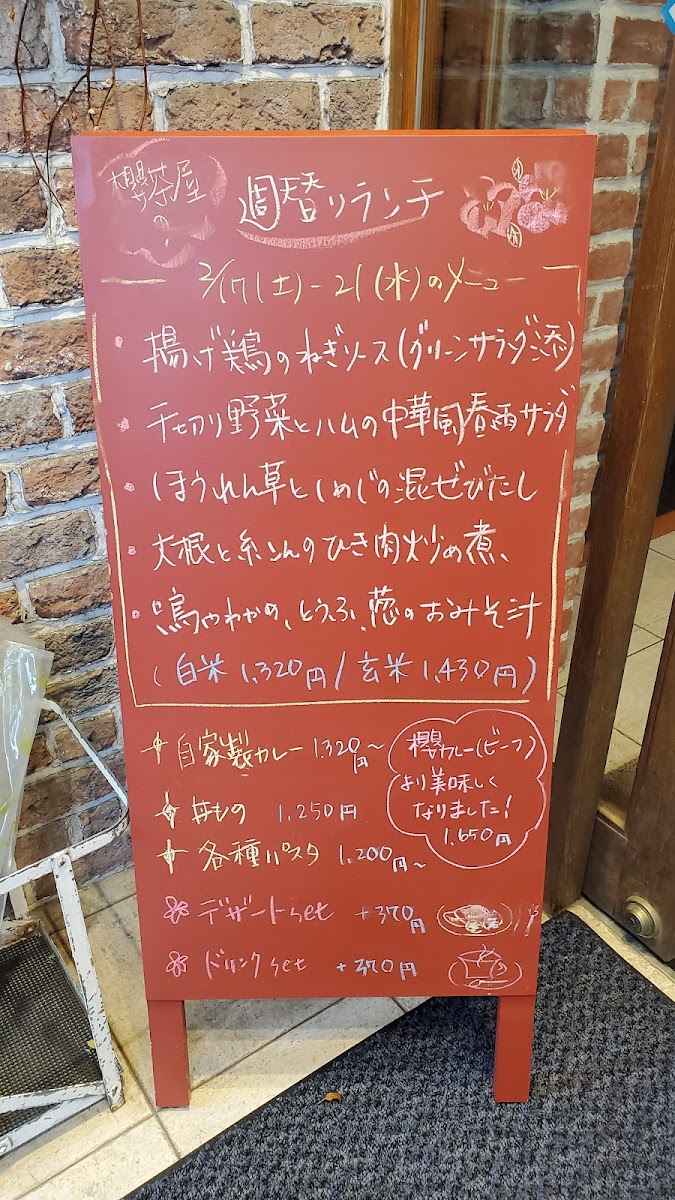 櫻茶屋
の
週替りランチ
2/17(土)-21(水)のメニュー
・揚げ鶏のねぎソース(グリーンサラダ添)
・千切り野菜とハムの中華風春雨サラダ
・ほうれん草としめじの混ぜびたし
・大根と糸こんのひき肉炒め煮、
・わかめ、とうふ、葱のおみそ汁
(白米1,320円/玄米1,430円)
自家製カレー 1320円~
櫻カレー(ビーフ)
より美味しく
なりました!
1,650円
丼もの 1,250円
各種パスタ 1,200円~
デザートset +370円
ドリンクset +370円